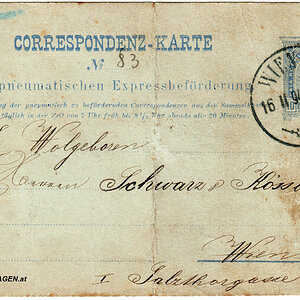 CORRESPONDENZ-KARTE
№ 83
pneumatischen Expressbeförderung
ng der pneumatisch zu befördernden Correspondenzen aus den Sammel
täglich in der Zeit von 7 Uhr früh bis 8½ Uhr abends alle 20 Minuten.
WIEN
16 II
Wolgeboren
Herren Schwarz & Rössi
Wien
I Salzthorgasse
AGEN.at